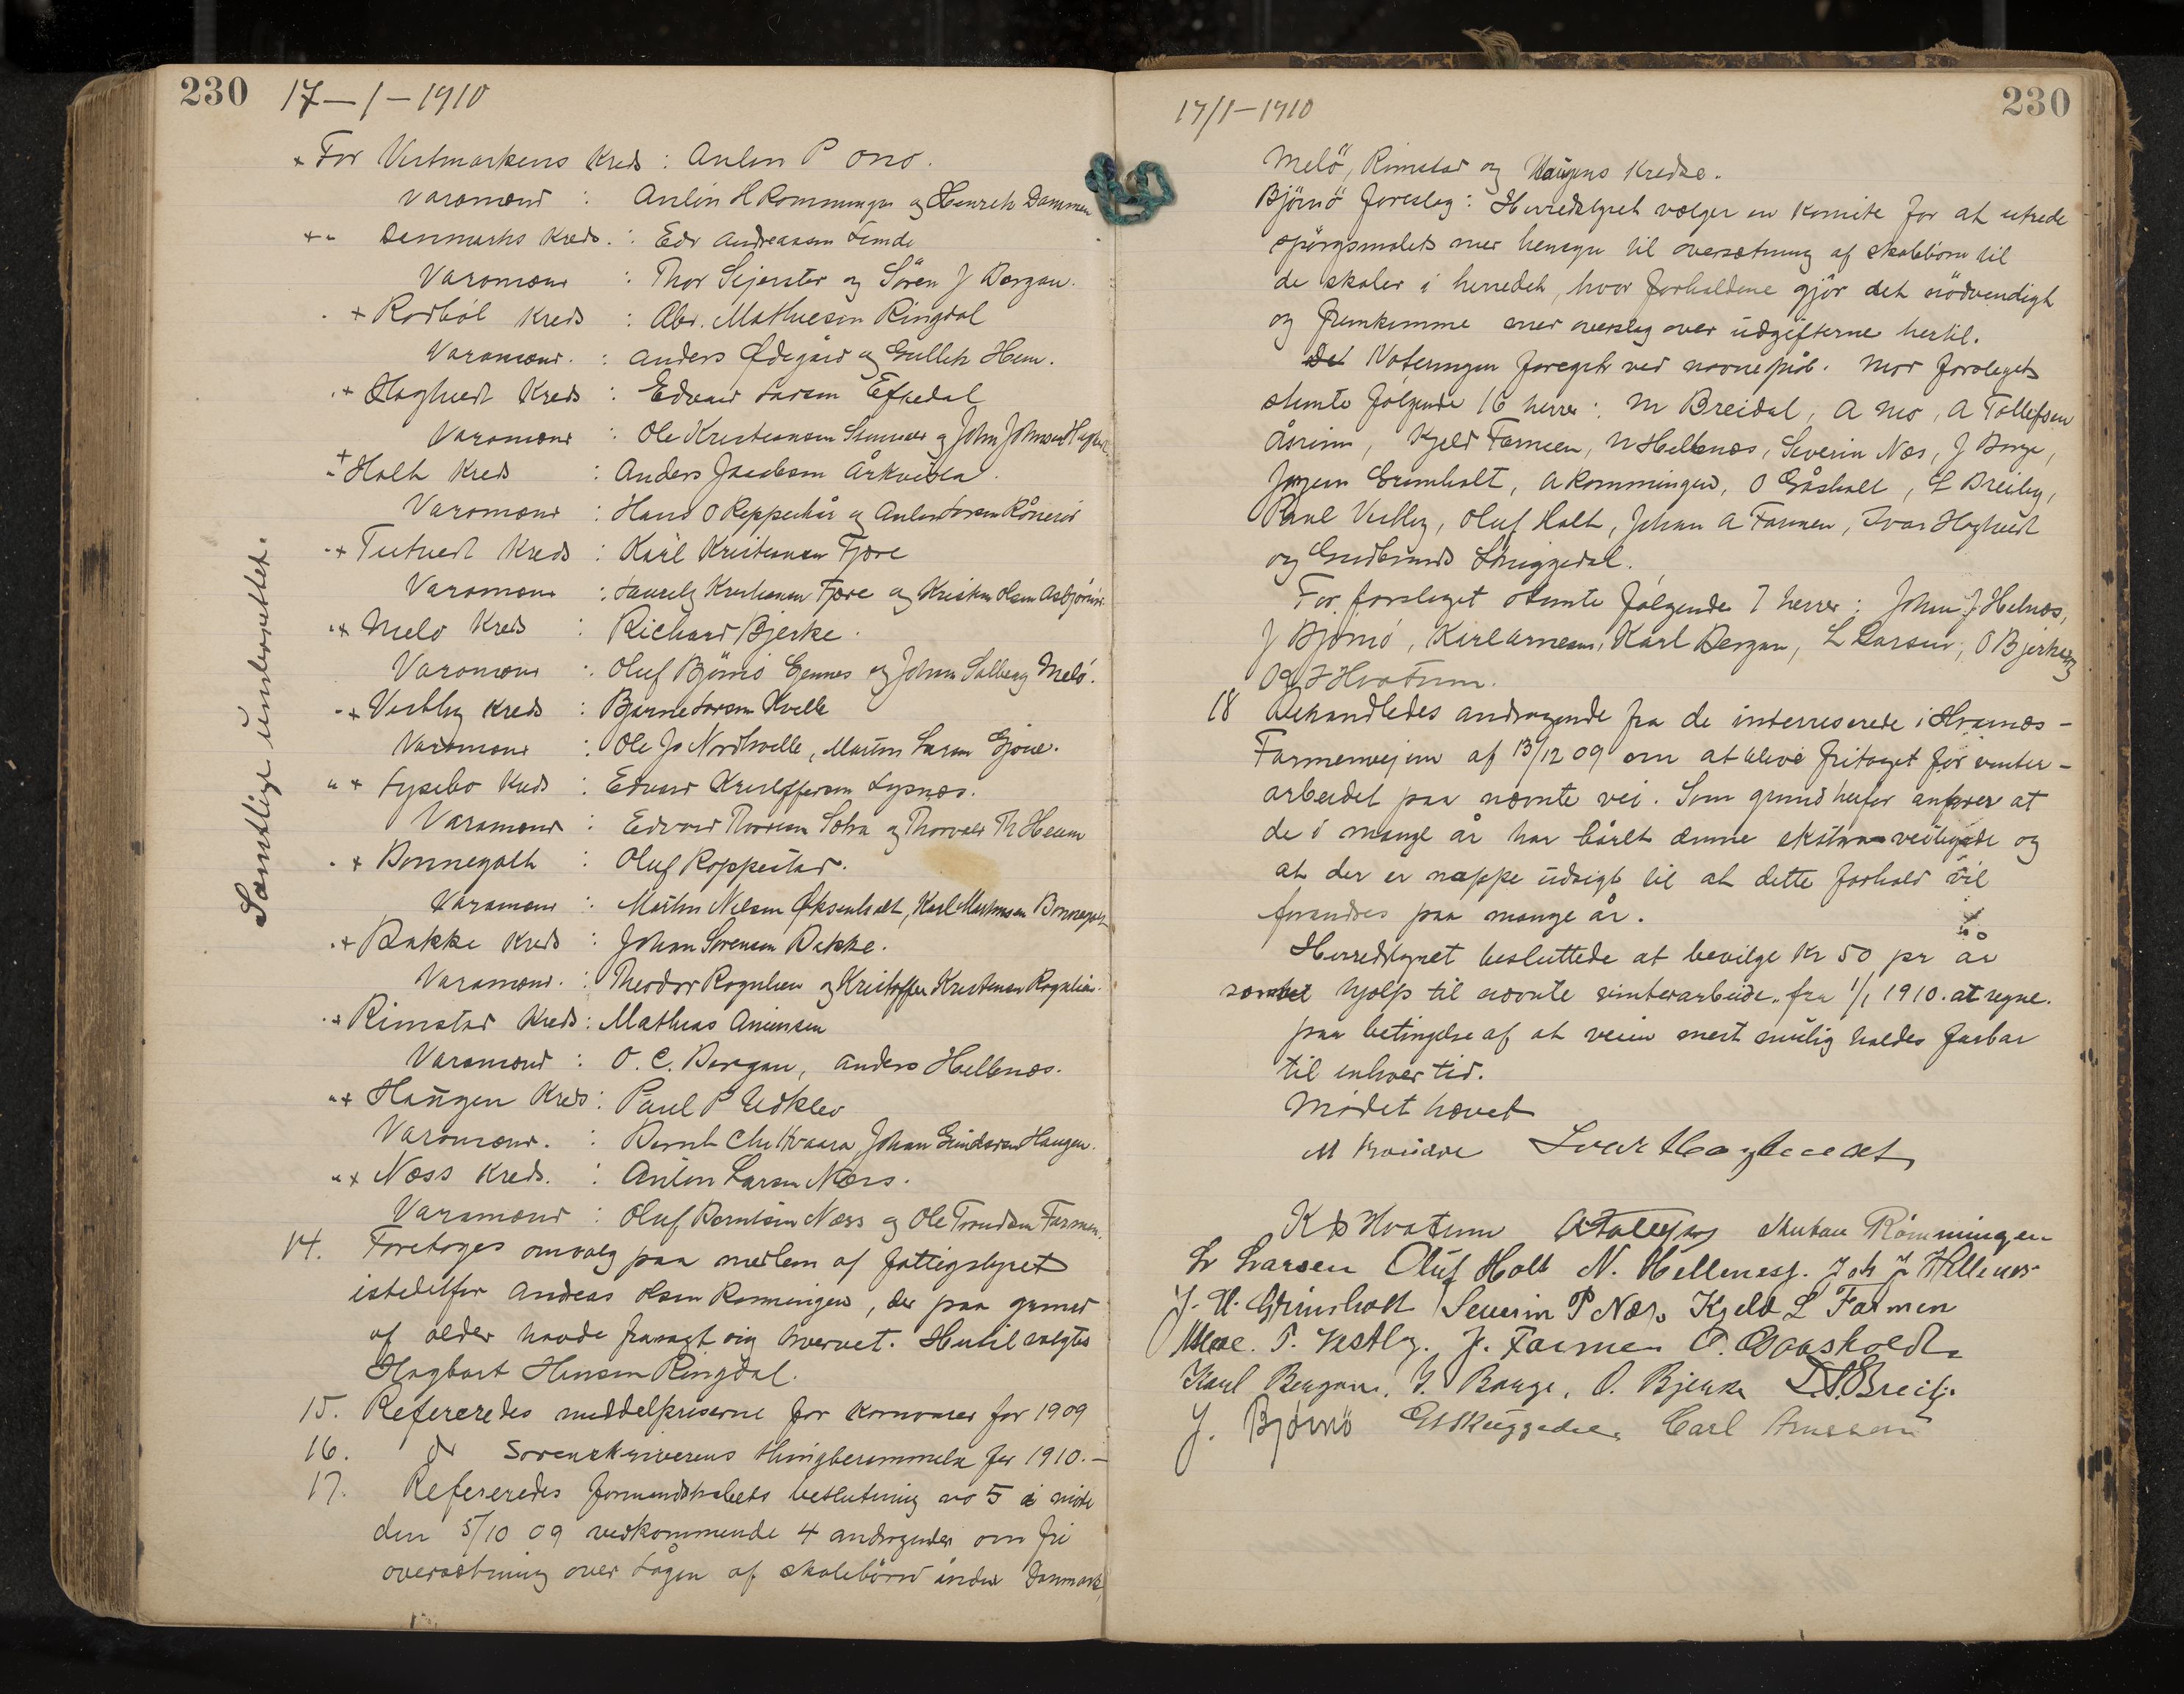 230 17-1-1910
+ For Vestmarkens Kreds : Anton P Ono.
Varamænd : Anton H Rommingen og Henrik Dammen
+ " Danmarks Kreds. : Edv Andreassen Limde
Varamænd : Thor Sejersted og Sören J Bergan.
. + Rødbøl Kreds : Abr. Mathiesen Ringdal
Varamænd. : Anders Ødegård og Gullik Hem.
. + Hogtvedt Kreds : Edvard Larsen Eftedal
Varamænd : Ole Kristiansen og John Johnsen
+ " Holt Kreds : Anders Jacobsen Årkvisla.
Varamænd : Hans O Reppeskår og Anton Larsen Rönerød
. + Tutvedt Kreds : Karl Kristiansen Fjære
Varamænd : Lauritz Kristiansen Fjære og Kristen Olsen Asbjörnsrö
. + Melö Kreds : Richard Bjerke.
Varamænd : Oluf Björnö Gjennes og Johan Solberg Melö.
. + Vestby Kreds : Bjarne Larsen Kvelle
Varamænd : Ole Js Nordkvelle, Martin Larsen Gjöne.
" + Lysebo Kreds : Edvard Kristoffersen Lysnæs.
Varamænd : Edvard Thoresen og Thorvald Th Heum
. + Bonnegolt : Oluf Roppestad.
Varamænd : Martin Nilsen Øksenholt, Karl Martinsen Bonnegolt
. + Bakke Kreds : Johan Sørensen Bakke.
Varamænd. : Theodor Rognlien og Kristoffer Kristensen Rognlien.
. + Rimstad Kreds : Mathias Amundsen
Varamænd : O. C. Bergan, Anders Hellenæs.
" + Haugen Kreds : Paul P Udklev
Varamænd. : Bernt Chr Hvaara Johan Gundersen Haugen.
" + Næss Kreds. : Anton Larsen Næss.
Varamænd : Oluf Berntsen Næss og Ole Trondsen Farmen.
Samtlige underrettet.
14. Foretoges omvalg paa medlem af fattigstyret
istedetfor Andreas Olsen Romingen, der paa grund
af alder havde frasagt sig hvervet. Hertil valgtes
Hagbart Hansen Ringdal.
15. Refereredes middelpriserne for kornvarer for 1909
16. do Sorenskriverens thingberammelse for 1910.-
17. Refereredes formandskabets beslutning no 5 i möte
den 5/10 09 vedkommende 4 andragender om fri
oversætning over Lågen af skolebörn inden Danmark,
17/1-1910 230
Melö, Rimstad og Haugens Kredse.
Björnö foreslog : Herredstyret vælger en komite for at utrede
spörgsmalet med hensyn til oversætning af skolebörn til
de skoler i herredet, hvor forholdene gjör det nödvendigt
og fremkomme med overslag over udgifterne hertil.
Det Voteringen foregik ved navneopråb. Mod forslaget
stemte følgende 16 herrer : M Breidal, A Mo, A Tollefsen
Åsrinn, Kjeld Farmen, N Hellenæs, Severin Næs, J Borge,
Jørgen Grimholt, A Rommingen, O Gåsholt, L Breiby,
Paul Vestby, Oluf Holt, Johan A Farmen, Ivar Hogtvedt
og Gudbrand Skuggedal.
For forslaget stemte følgende 7 herrer : Johan J Helnæs,
J Björnö, Karl Arnesen, Karl Bergan, L Larsen, O Bjerke og
og K Hvatum.
18 Behandledes andragende fra de interreserede i Hvamnæs-
Farmenvejen af 13/12 09 om at blive fritaget for vinter-
arbeidet paa nævnte vei. Som grund herfor anfører at
de i mange år har båret denne ekstra veibyrde og
at der er næppe udsigt til at dette forhold vil
forandres paa mange år.
Herredstyret besluttede at bevilge Kr 50 pr år
som hjælp til nævnte vinterarbeide fra 1/1 1910 at regne.
paa betingelse af at veien mest mulig holdes farbar
til enhver tid.
Mødet hævet
M Breidal Ivar Hogtvedt
K Hvatum A Tollefsen Anton Römmingen
L Larsen Oluf Holt N. Helleness. Joh J Hellenæs
J. H. Grimholt Severin P Næss Kjeld L Farmen
P. Vestby. J. Farmen O. Gaasholdt
Karl Bergan. J. Borge, O. Bjerke L. Breiby.
J. Björnö G Skuggedal. Carl Arnesen